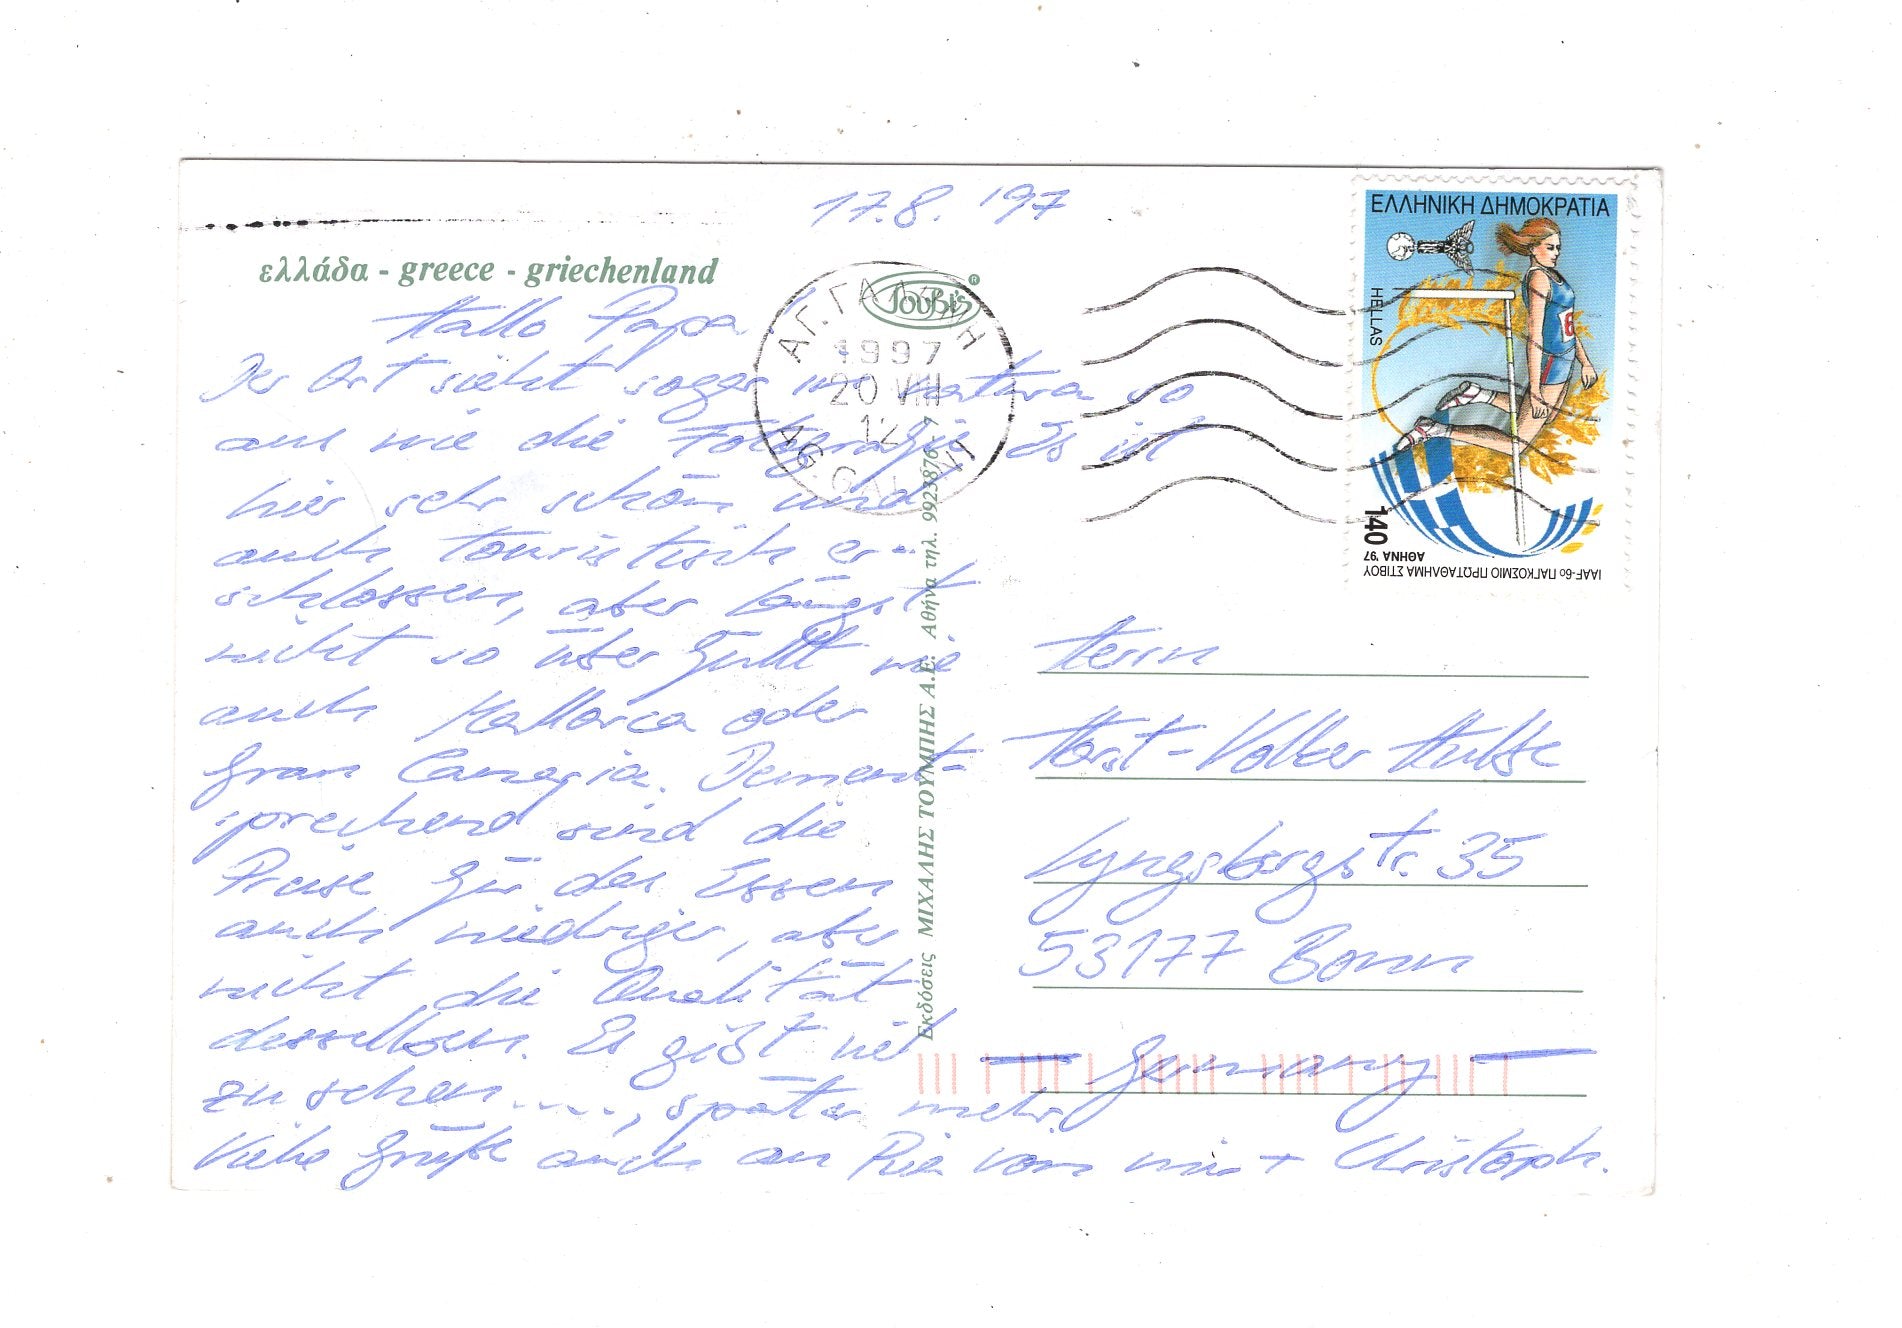 17.8. '97
ελλάδα - greece - griechenland
Hallo Papa!
Der Ort sieht sogar in natura so
aus wie die Fotografie. Es ist
hier sehr schön und
auch touristisch er-
schlossen, aber längst
nicht so überfüllt wie
auch Mallorca oder
Gran Canaria. Dement-
sprechend sind die
Preise für das Essen
auch niedriger, aber
nicht die Qualität
desselben. Es gibt viel
zu sehen...., später mehr.
Viele Grüße auch an von mir + Christoph.
Τουβi's ®
ΑΓ. ΓΑΛΗΝΗ
1997
20 VIII
12
AG. GALINI
Εκδόσεις ΜΙΧΑΛΗΣ ΤΟΥΜΠΗΣ Α.Ε. Αθήνα τηλ. 9923876-7
ΕΛΛΗΝΙΚΗ ΔΗΜΟΚΡΑΤΙΑ
HELLAS
6
140
IAAF-6ο ΠΑΓΚΟΣΜΙΟ ΠΡΩΤΑΘΛΗΜΑ ΣΤΙΒΟΥ
ΑΘΗΝΑ '97
Herrn
Horst-Volker
Lyngsbergstr. 35
53177 Bonn
— Germany —